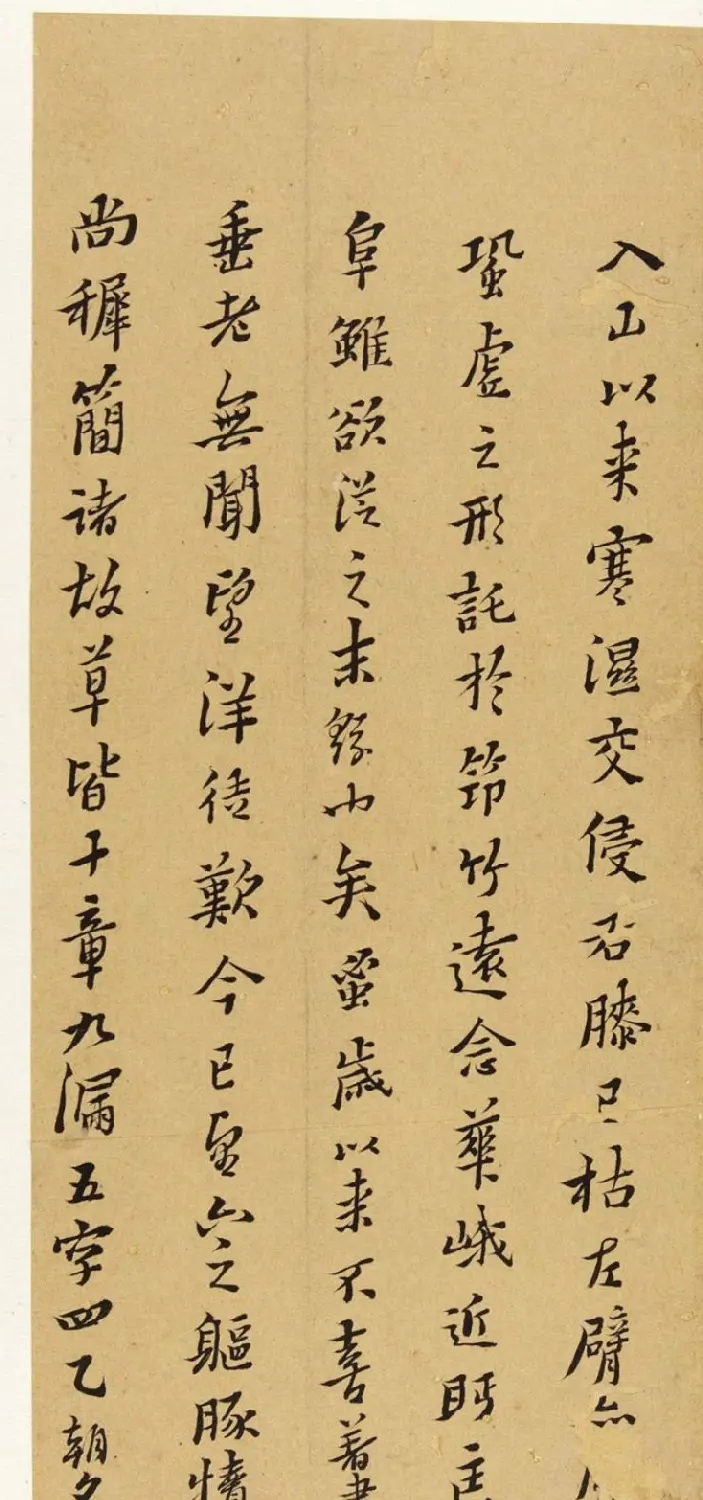 入山以来寒濕交侵右膝已枯左臂亦
蛩虛之形託於笻竹遠念華峨近眄
阜雖欲從之末繇也矣蜚歲以来不喜著書
垂老無聞望洋徒歎今已望六之軀豚犢
尚穉簡諸故草皆十章九漏五字四乙朝夕